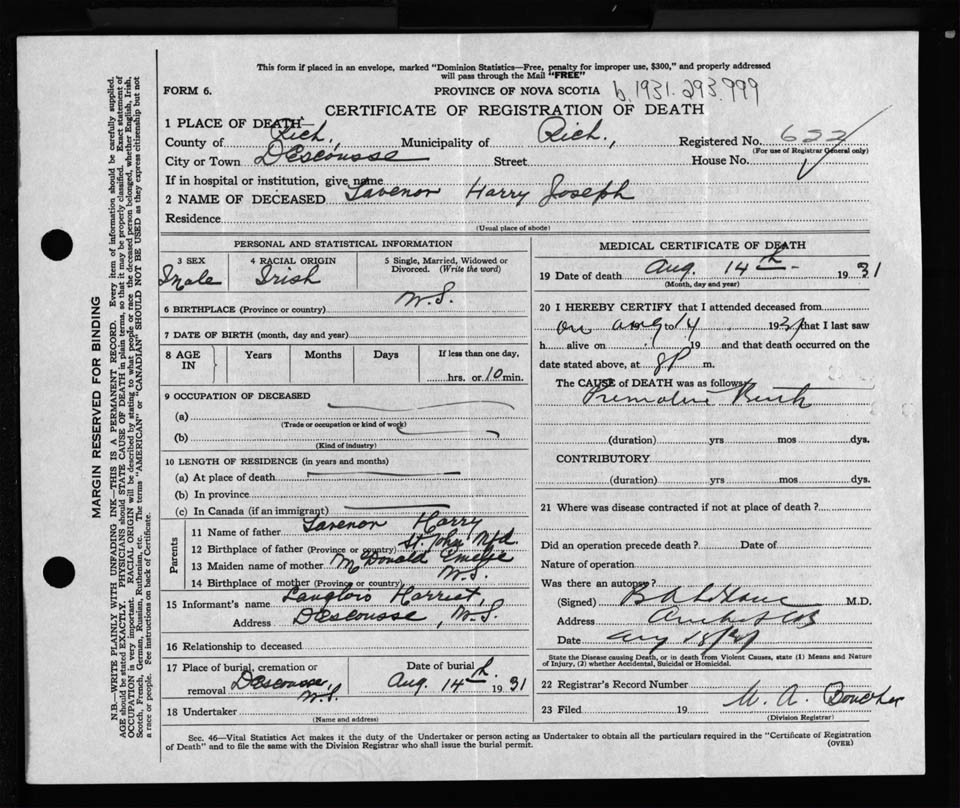 This form if placed in an envelope, marked "Dominion Statistics—Free, penalty for improper use, $300," and properly addressed
will pass through the Mail "FREE"
FORM 6.
PROVINCE OF NOVA SCOTIA b. 1931.293.799
CERTIFICATE OF REGISTRATION OF DEATH
1 PLACE OF DEATH—
County of Rich, Municipality of Rich., Registered No. 622
(For use of Registrar General only)
City or Town Descousse Street House No.
If in hospital or institution, give name
2 NAME OF DECEASED Tavenor Harry Joseph
Residence
(Usual place of abode)
PERSONAL AND STATISTICAL INFORMATION
3 SEX 4 RACIAL ORIGIN 5 Single, Married, Widowed or
Divorced. (Write the word)
Male Irish
6 BIRTHPLACE (Province or country) N.S.
7 DATE OF BIRTH (month, day and year)
8 AGE IN Years Months Days If less than one day,
hrs. or 10 min.
9 OCCUPATION OF DECEASED
(a)
(Trade or occupation or kind of work)
(b)
(Kind of industry)
10 LENGTH OF RESIDENCE (in years and months)
(a) At place of death
(b) In province
(c) In Canada (if an immigrant)
Parents
11 Name of father Tavenor Harry
12 Birthplace of father (Province or country) St. John Nfd.
13 Maiden name of mother McDonald Emelie
14 Birthplace of mother (Province or country) N.S.
15 Informant's name Langlois Harriet,
Address Descousse, N.S.
16 Relationship to deceased
17 Place of burial, cremation or Date of burial
removal Descousse, N.S. Aug. 14th 1931
18 Undertaker
(Name and address)
MEDICAL CERTIFICATE OF DEATH
19 Date of death Aug. 14th 1931
(Month, day and year)
20 I HEREBY CERTIFY that I attended deceased from
on aug 14 1931 that I last saw
h alive on 19 and that death occurred on the
date stated above, at 8P m.
The CAUSE of DEATH was as follows:
Premature Birth
(duration) yrs mos dys.
CONTRIBUTORY
(duration) yrs mos dys.
21 Where was disease contracted if not at place of death?
Did an operation precede death? Date of
Nature of operation
Was there an autopsy?
(Signed) M.D.
Address
Date Aug
State the Disease causing Death, or in death from Violent Causes, state (1) Means and Nature
of Injury, (2) whether Accidental, Suicidal or Homicidal.
22 Registrar's Record Number
23 Filed 19 W. A. Boucher
(Division Registrar)
Sec. 46—Vital Statistics Act makes it the duty of the Undertaker or person acting as Undertaker to obtain all the particulars required in the "Certificate of Registration
of Death" and to file the same with the Division Registrar who shall issue the burial permit. (OVER)
MARGIN RESERVED FOR BINDING
N.B.—WRITE PLAINLY WITH UNFADING INK—THIS IS A PERMANENT RECORD. Every item of information should be carefully supplied.
AGE should be stated EXACTLY. PHYSICIANS should STATE CAUSE OF DEATH in plain terms, so that it may be properly classified. Exact statement of
OCCUPATION is very important. RACIAL ORIGIN will be described by stating to what people or race the deceased person belonged, whether English, Irish,
Scotch, French, German, Russian, Ruthenian, etc. The terms "AMERICAN" or "CANADIAN" SHOULD NOT BE USED as they express citizenship but not
a race or people. Fee instructions on back of Certificate.